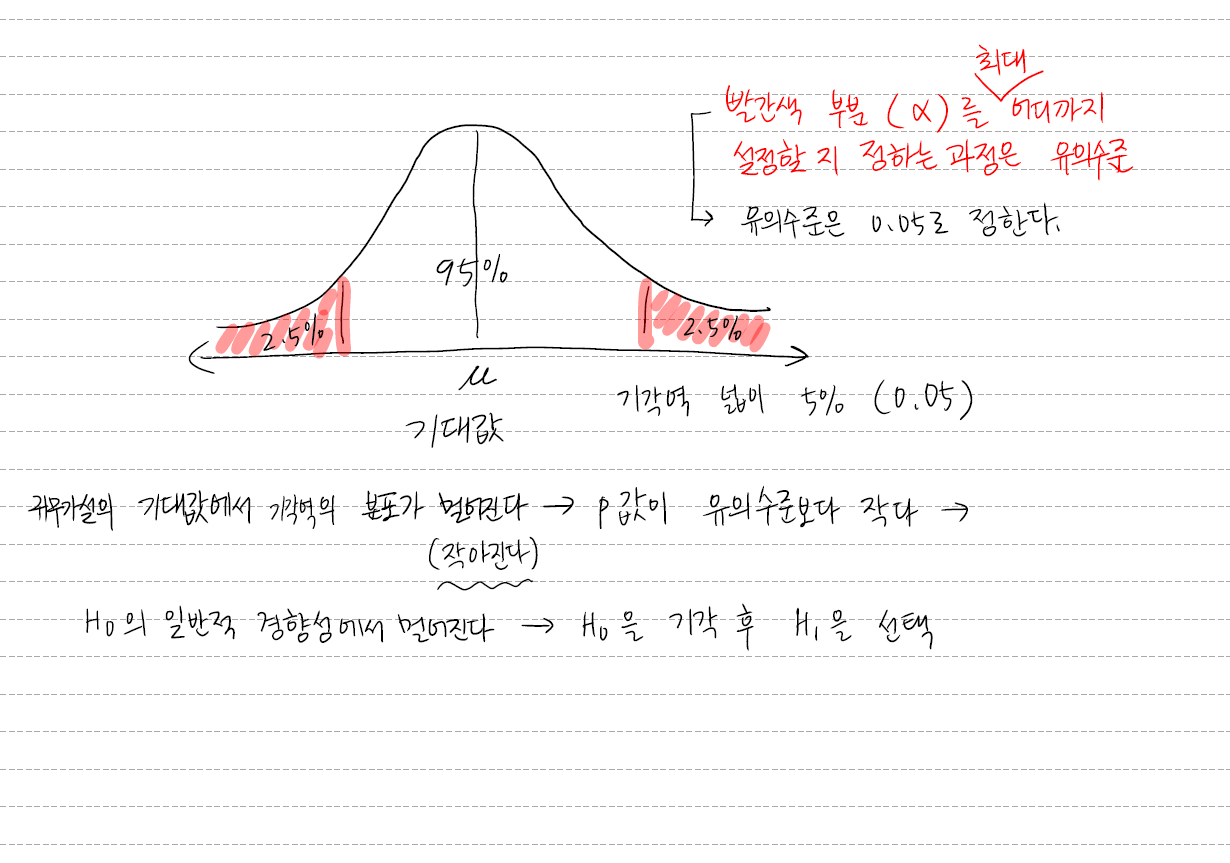 최대
발간색 부분 (α)를 어디까지
설정할 지 정하는 과정은 유의수준
유의수준은 0.05로 정한다.
95%
2.5%
2.5%
μ
기각역 넓이 5% (0.05)
기대값
귀무가설의 기대값에서 기각역의 분포가 멀어진다 → p값이 유의수준보다 작다 →
(작아진다)
H₀의 일반적 경향성에서 멀어진다 → H₀을 기각 후 H₁을 선택